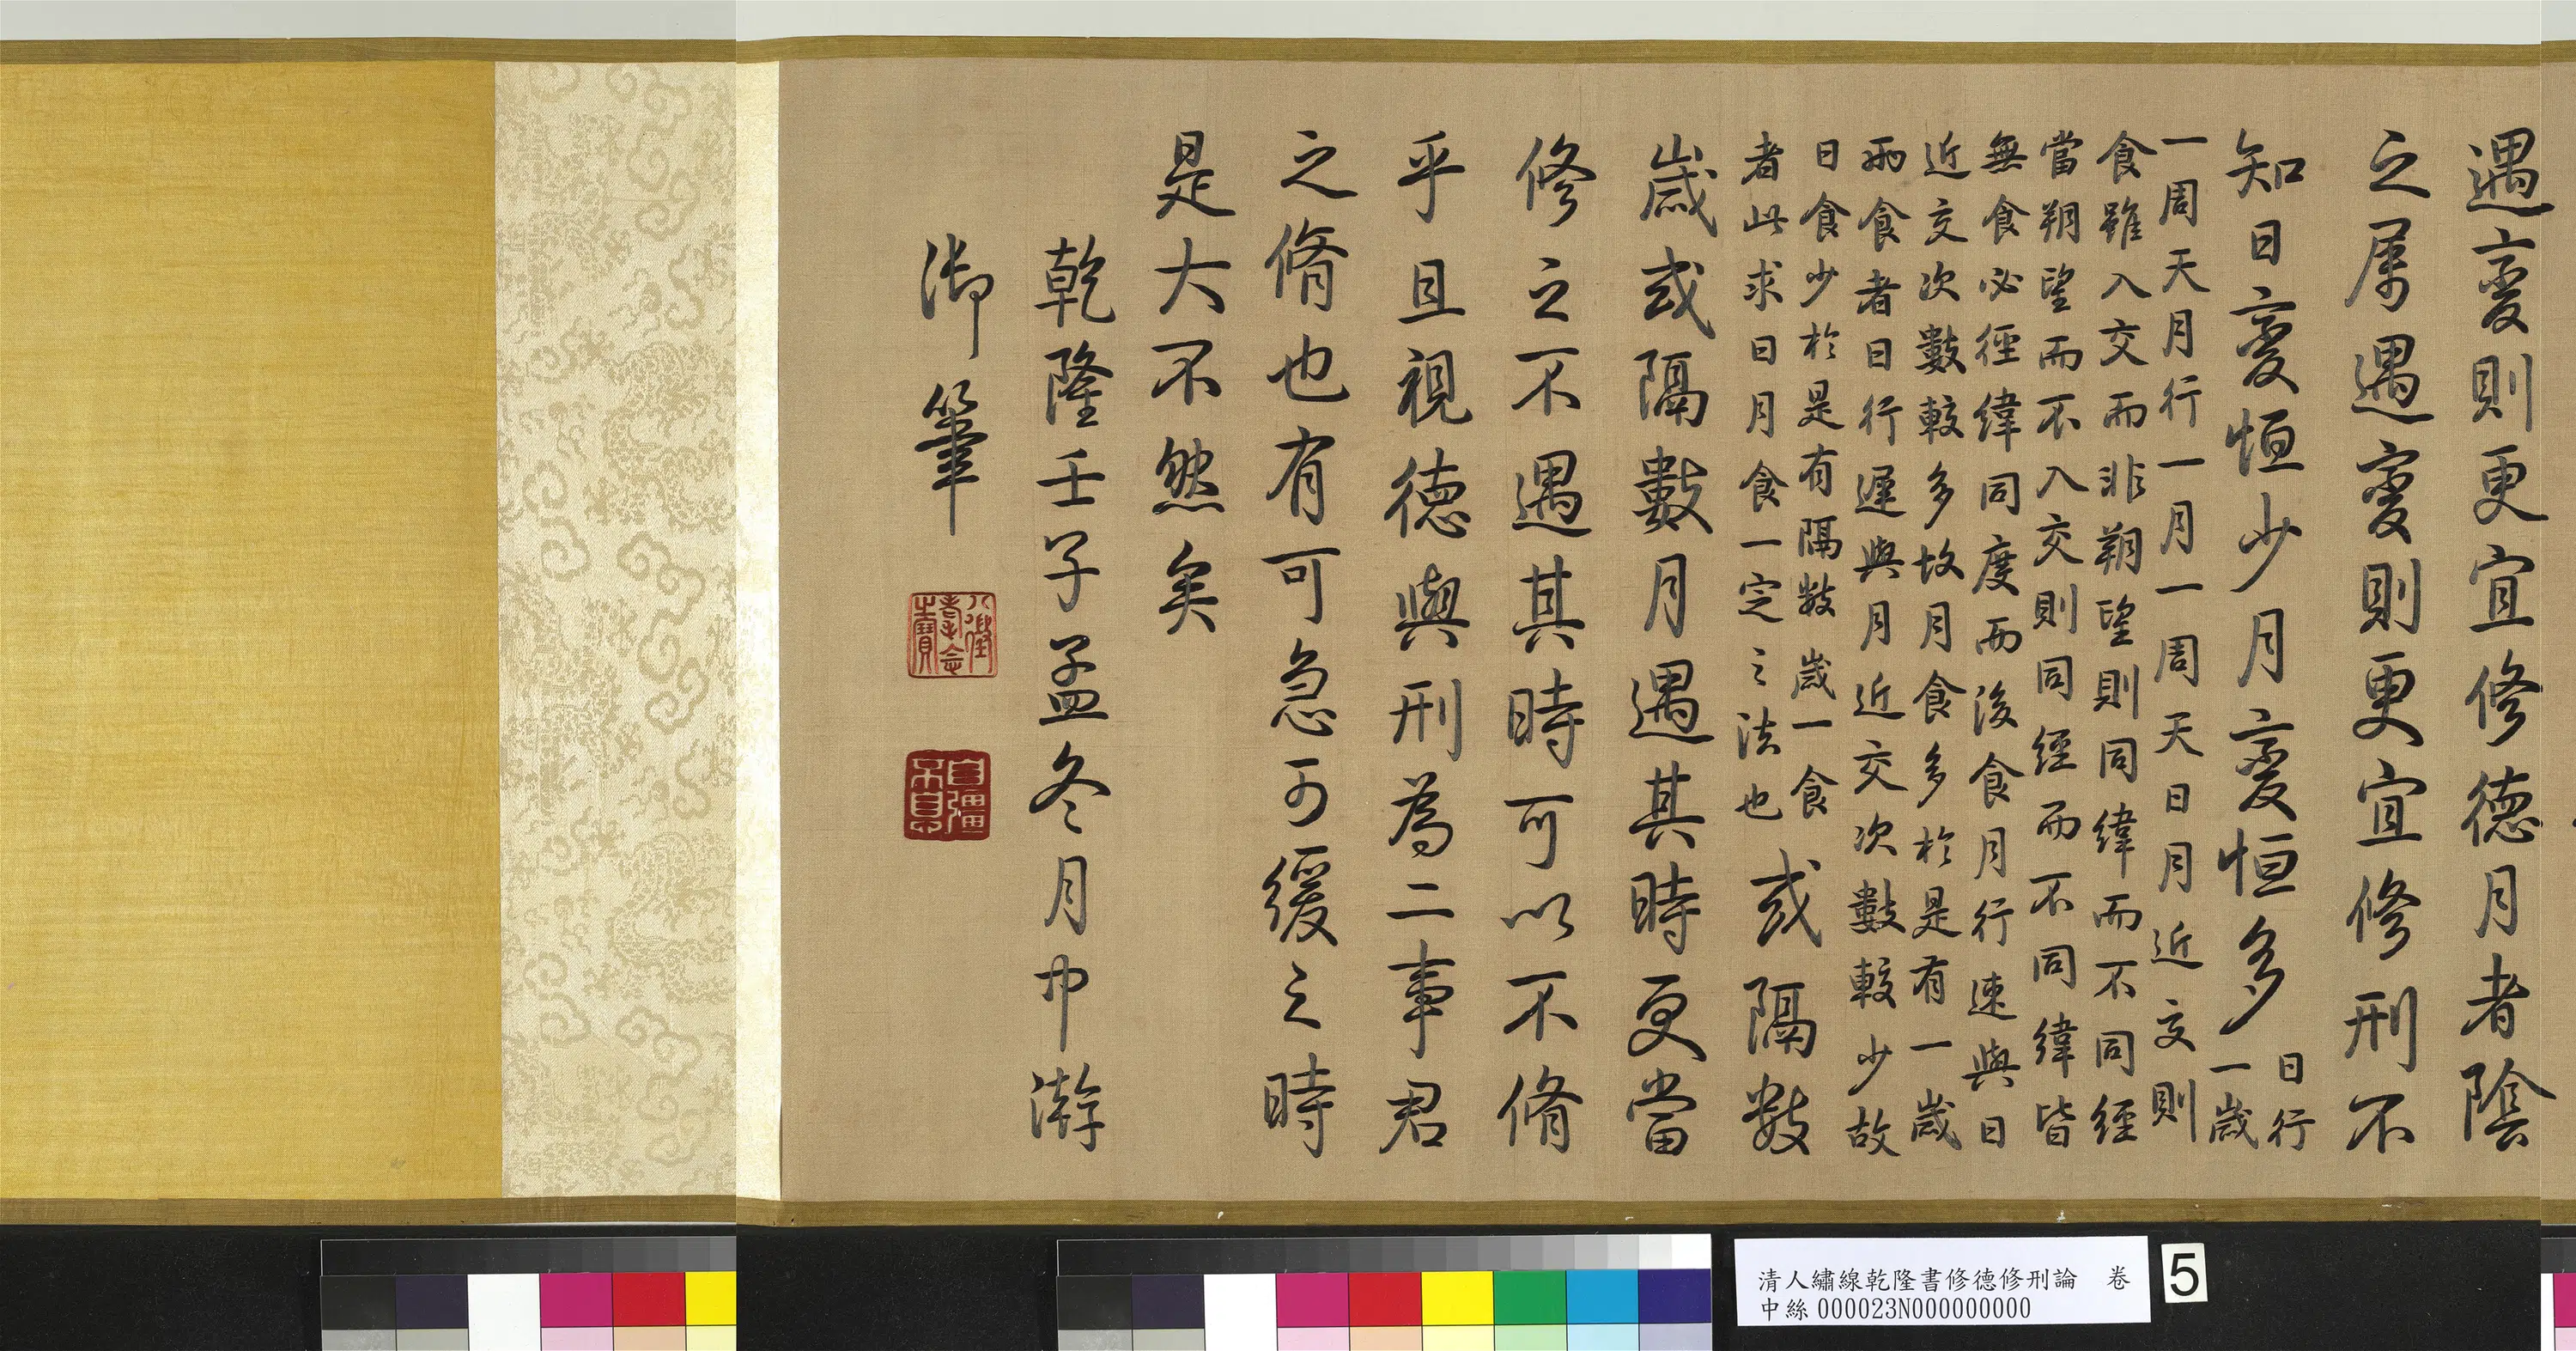 遇變則更宜修德月者陰
之属遇變則更宜修刑不
知日變恒少月變恒多
日行
一歲
一周天月行一月一周天日月近交則
食雖入交而非朔望則同緯而不同經
當朔望而不入交則同經而不同緯皆
無食必徑緯同度而後食月行速與日
近交次數較多故月食多於是有一歲
兩食者日行遲與月近交次數較少故
日食少於是有隔數歲一食
者此求日月食一定之法也
或隔數
歲或隔數月遇其時更當
修之不遇其時可以不脩
乎且視德與刑為二事君
之脩也有可急可緩之時
是大不然矣
乾隆壬子孟冬月中澣
御筆
八徵耄念之寶
自彊不息
清人繡線乾隆書修德修刑論 卷
中絲000023N000000000
5